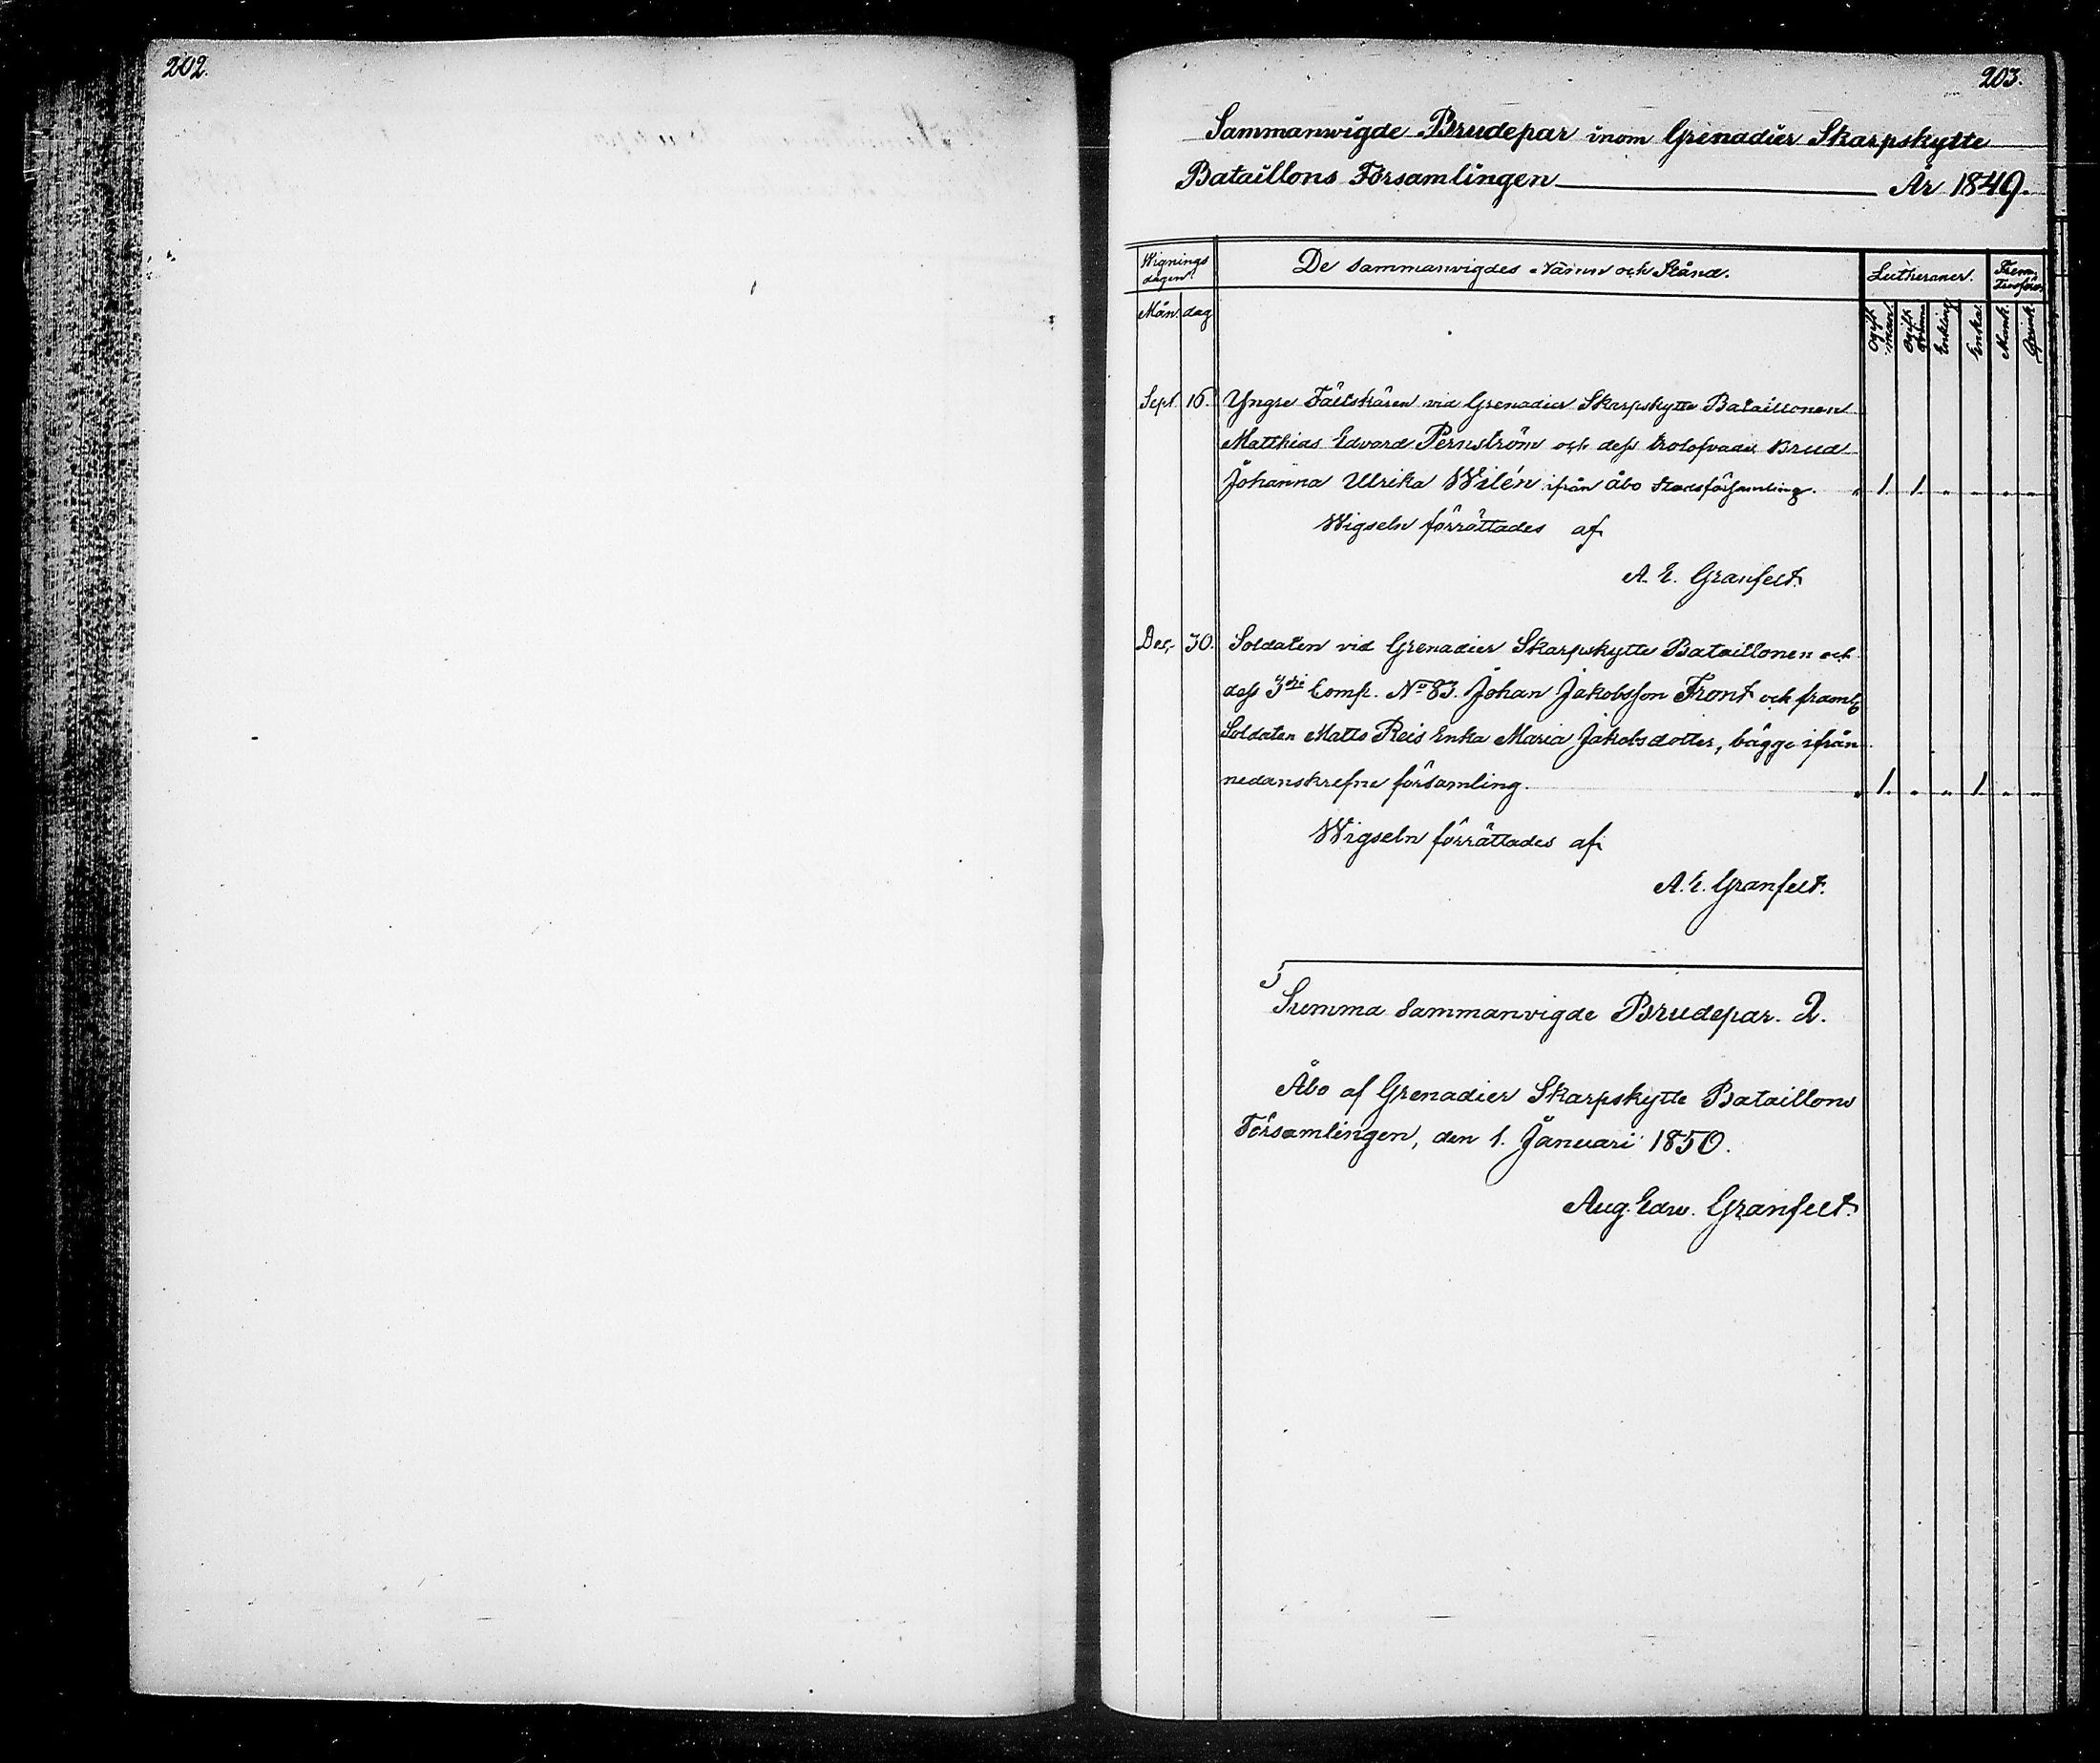 202.
203.
Sammanwigde Brudepar inom Grenadier Skarpskytte
Bataillons Församlingen År 1849.
Wignings dagen. De sammanvigdes Namn och Stånd. Lutheraner. Frem. Trosförv.
Mån. dag Ogift man. Ogift qvinna Enkling Enka. Mank. Qvink.
Sept. 16. Yngre Fältskären vid Grenadier Skarpskytte Bataillonen
Matthias Edvard Pernström och dess trolofvade Brud
Johanna Ulrika Wilén ifrån Åbo Stadsförsamling. " 1. 1. " " " "
Wigseln förrättades af
A. E. Granfelt.
Dec. 30. Soldaten vid Grenadier Skarpskytte Bataillonen och
dess 3dje Comp. No 83. Johan Jakobsson Front och framl.
Soldaten Matts Reis Enka Maria Jakobsdotter, bägge ifrån
nedanskrefne församling. " 1. " " 1. " "
Wigseln förrättades af
A. E. Granfelt.
Summa Sammanvigde Brudepar. 2.
Åbo af Grenadier Skarpskytte Bataillons
Församlingen, den 1. Januari 1850.
Aug. Edw. Granfelt.